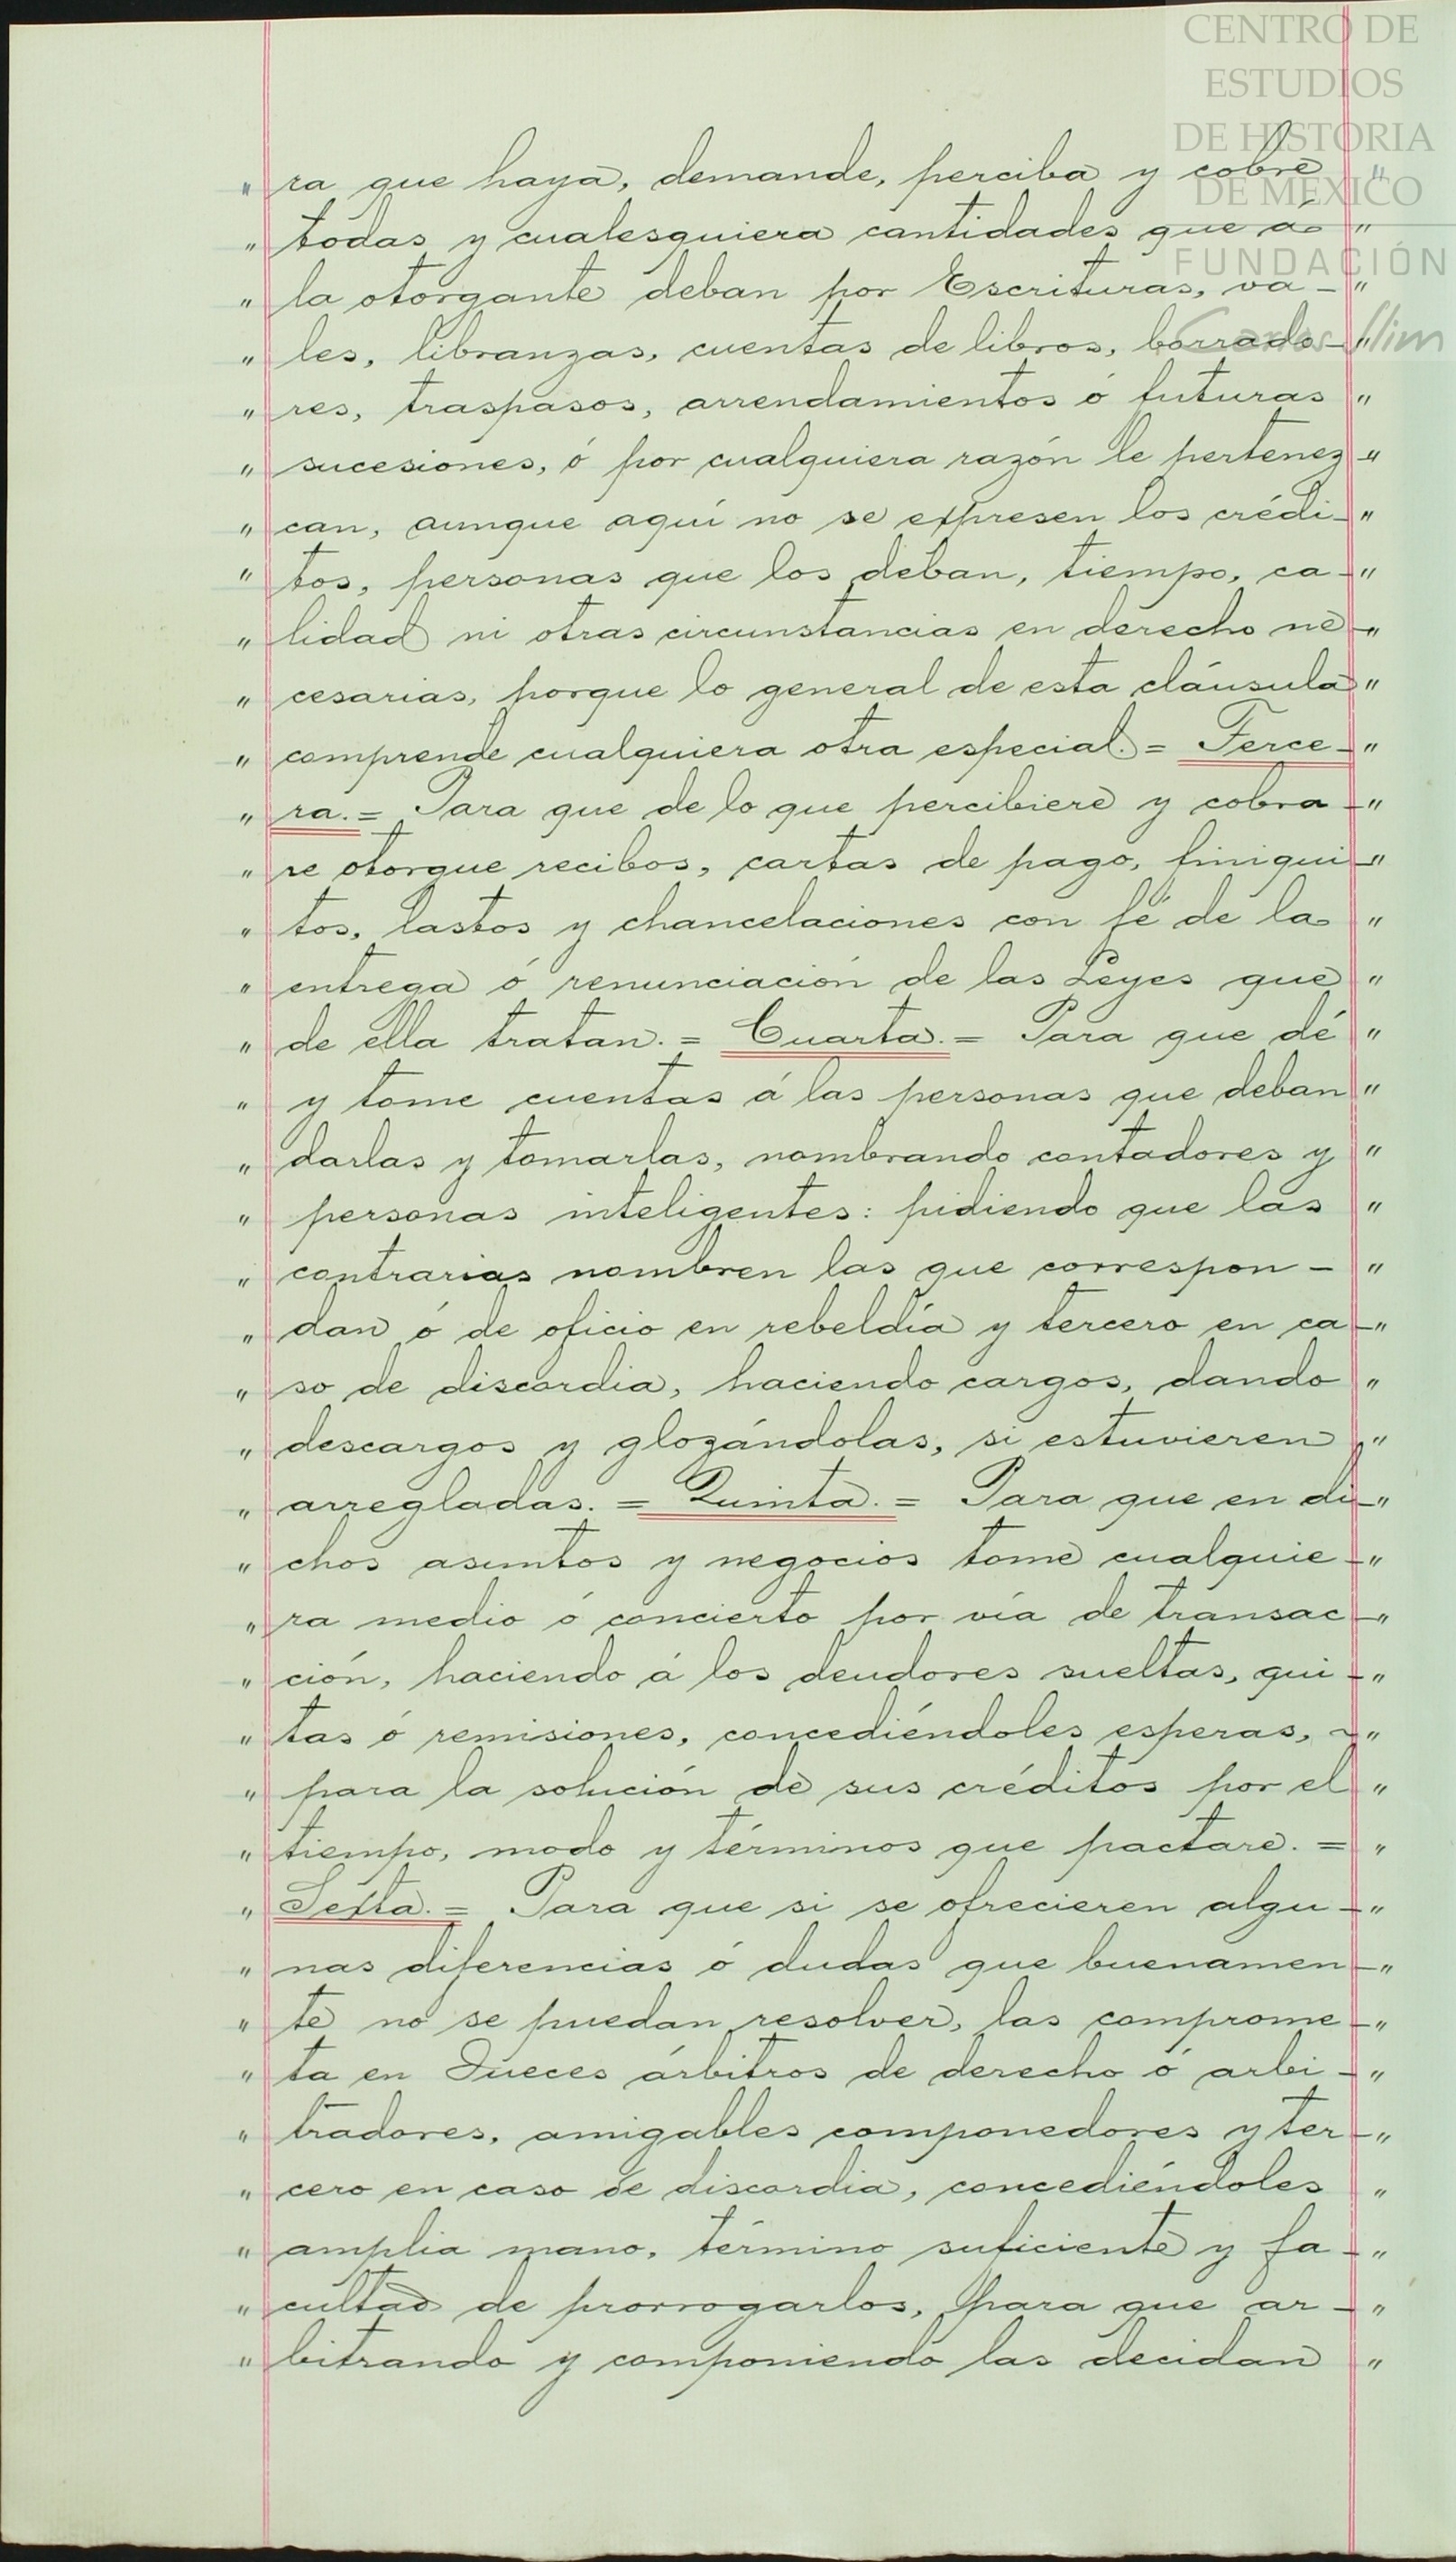 CENTRO DE
ESTUDIOS
DE HISTORIA
DE MÉXICO
FUNDACIÓN
Carlos Slim
" ra que haya, demande, perciba y cobre "
" todas y cualesquiera cantidades que á "
" la otorgante deban por Escrituras, va- "
" les, libranzas, cuentas de libros, borrado- "
" res, traspasos, arrendamientos ó futuras "
" sucesiones, ó por cualquiera razón le pertenez- "
" can, aunque aquí no se expresen los crédi- "
" tos, personas que los deban, tiempo, ca- "
" lidad ni otras circunstancias en derecho ne- "
" cesarias, porque lo general de esta cláusula "
" comprende cualquiera otra especial. = Terce- "
" ra. = Para que de lo que percibiere y cobra- "
" re otorgue recibos, cartas de pago, finiqui- "
" tos, lastos y chancelaciones con fé de la "
" entrega ó renunciación de las Leyes que "
" de ella tratan. = Cuarta. = Para que dé "
" y tome cuentas á las personas que deban "
" darlas y tomarlas, nombrando contadores y "
" personas inteligentes: pidiendo que las "
" contrarias nombren las que correspon- "
" dan ó de oficio en rebeldía y tercero en ca- "
" so de discordia, haciendo cargos, dando "
" descargos y glozándolas, si estuvieren "
" arregladas. = Quinta. = Para que en di- "
" chos asuntos y negocios tome cualquie- "
" ra medio ó concierto por vía de transac- "
" ción, haciendo á los deudores sueltas, qui- "
" tas ó remisiones, concediéndoles esperas, ~ "
" para la solución de sus créditos por el "
" tiempo, modo y términos que pactare. = "
" Sexta. = Para que si se ofrecieren algu- "
" nas diferencias ó dudas que buenamen- "
" te no se puedan resolver, las comprome- "
" ta en Jueces árbitros de derecho ó arbi- "
" tradores, amigables componedores y ter- "
" cero en caso de discordia, concediéndoles "
" amplia mano, término suficiente y fa- "
" cultad de prorrogarlos, para que ar- "
" bitrando y componiendo las decidan "